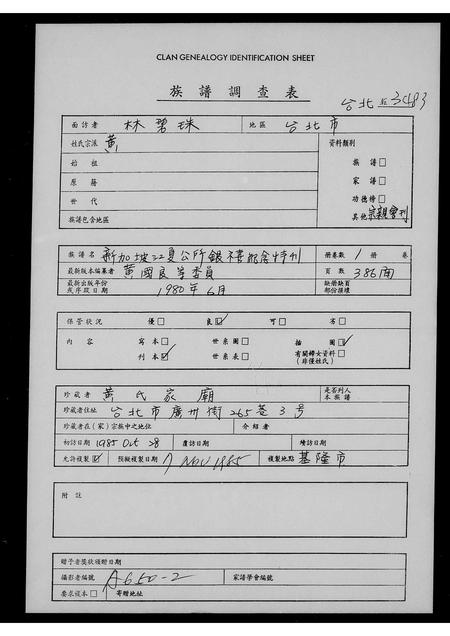 CLAN GENEALOGY IDENTIFICATION SHEET
族譜調查表
台北 3483
面訪者 林碧珠 地區 台北市
姓氏宗派 黃 資料類別
始祖 族譜□
原籍 家譜□
世代 功德榜□
族譜包含地區 其他 宗親會刊
族譜名 新加坡江夏公所銀禧紀念特刊 册卷數 1 册 卷
最新版本編纂者 黃國良等委員 頁數 386面
最新出版年份 缺册缺頁
或序跋日期 1980年6月 部份損壞
保管狀況 優□ 良☑ 可□ 劣□
內容 寫本□ 世系圖□ 插圖☑
刊本☑ 世系表□ 有關婦女資料□
(非僅姓氏)
珍藏者 黃氏家廟 是否列入
本族譜
珍藏者住址 台北市廣州街265巷3号
珍藏者在(家)宗族中之地位 介紹者
初訪日期 1985 Oct 28 覆訪日期 續訪日期
允許複製☑ 預擬複製日期 7 NOV 1985 複製地點 基隆市
附註
贈予者獎狀頒贈日期
攝影者編號 A650-2 家譜學會編號
要求複本□ 寄贈地址